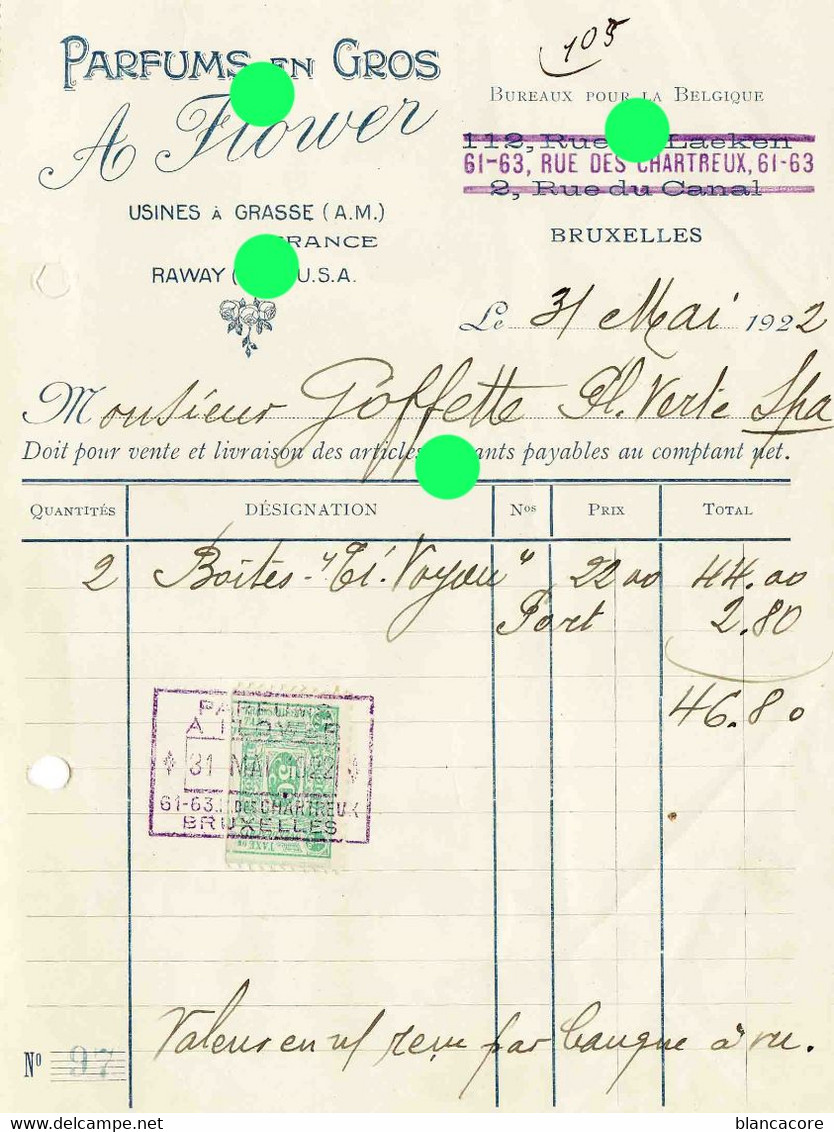 105
PARFUMS EN GROS
A Flower
USINES À GRASSE (A.M.)
FRANCE
RAWAY U.S.A.
BUREAUX POUR LA BELGIQUE
112, Rue Laeken
61-63, RUE DES CHARTREUX, 61-63
2, Rue du Canal
BRUXELLES
Le 31 Mai 1922
Monsieur Goffette Pl. Verte Spa
Doit pour vente et livraison des articles payables au comptant net.
QUANTITÉS DÉSIGNATION Nos PRIX TOTAL
2 Boîtes "Ti' Voyou" 22 00 44.00
Port 2.80
46.80
PARFUMS
A FLOWER
31 MAI 1922
61-63. R. DES CHARTREUX
BRUXELLES
Valeur en n/ par banque à vu.
No 97
blancacore